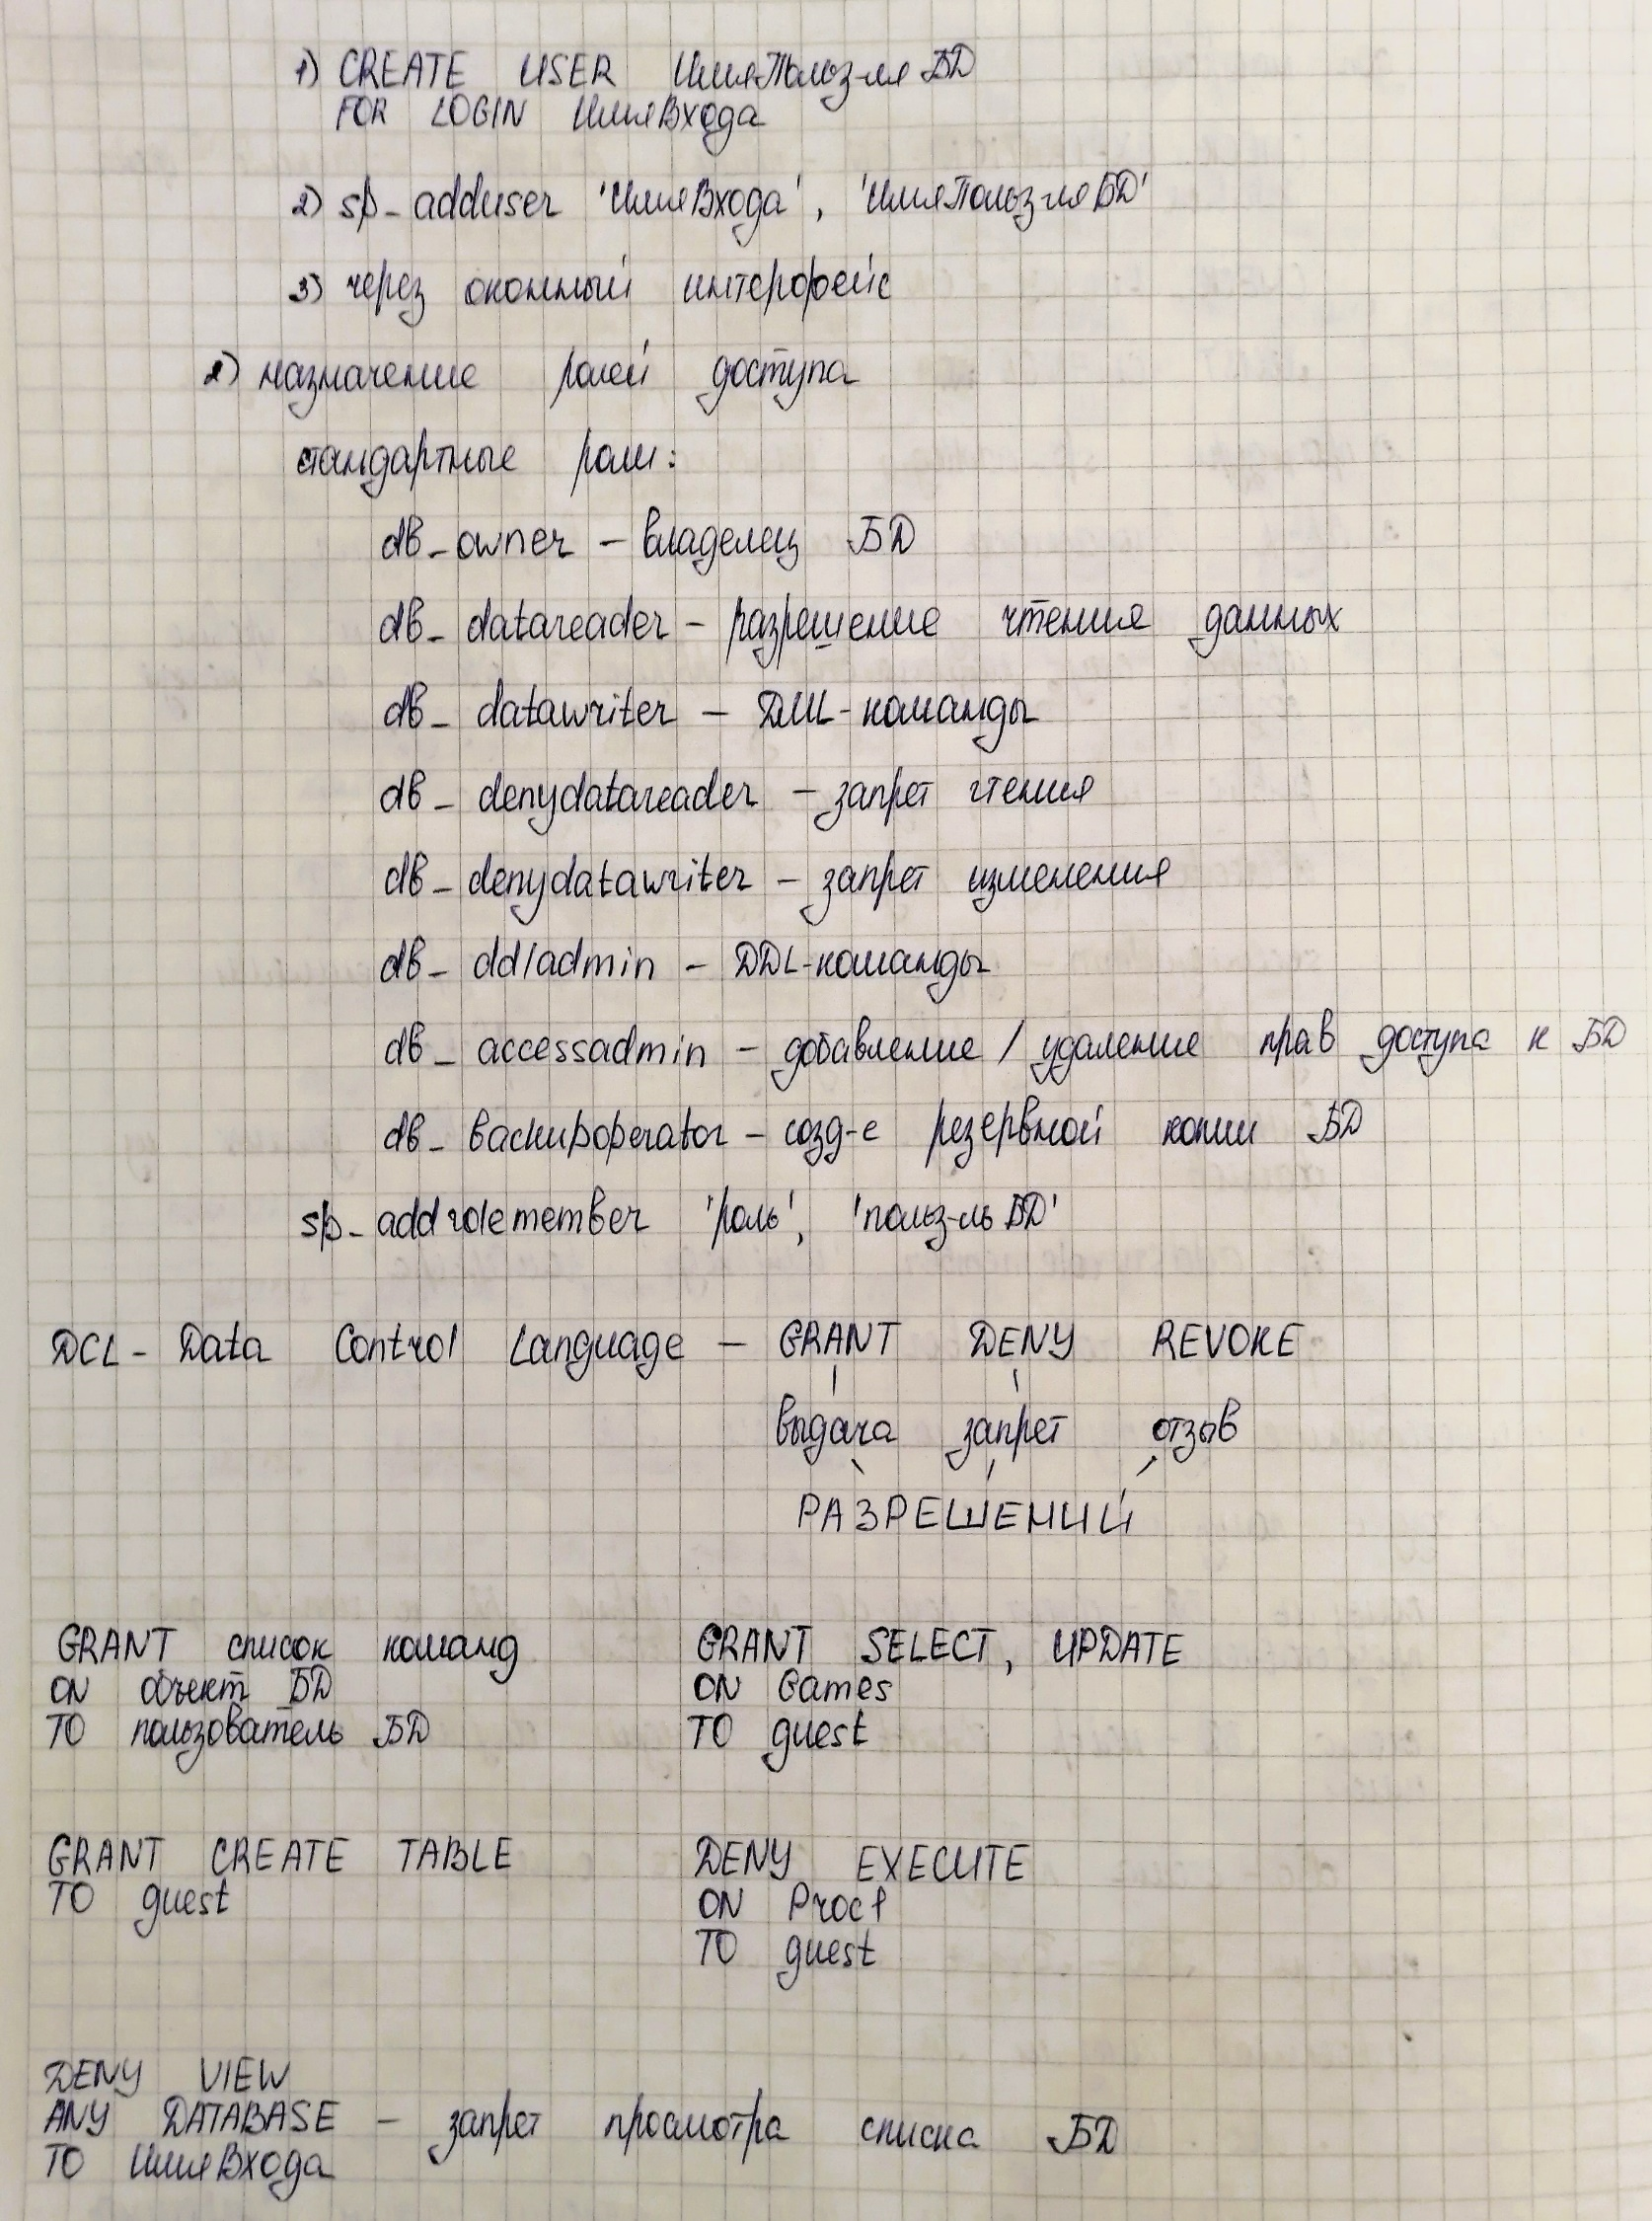 1) CREATE USER ИмяПольз-ля БД
FOR LOGIN ИмяВхода
2) sp_adduser 'ИмяВхода', 'ИмяПольз-ля БД'
3) через оконный интерфейс
2) назначение ролей доступа
стандартные роли:
db_owner - владелец БД
db_datareader - разрешение чтения данных
db_datawriter - DML-команды
db_denydatareader - запрет чтения
db_denydatawriter - запрет изменения
db_ddladmin - DDL-команды
db_accessadmin - добавление / удаление прав доступа к БД
db_backupoperator - созд-е резервной копии БД
sp_addrolemember 'роль', 'польз-ль БД'
DCL - Data Control Language - GRANT DENY REVOKE
выдача запрет отзыв
РАЗРЕШЕНИЙ
GRANT список команд GRANT SELECT, UPDATE
ON объект БД ON Games
TO пользователь БД TO guest
GRANT CREATE TABLE DENY EXECUTE
TO guest ON Proc1
TO guest
DENY VIEW
ANY DATABASE - запрет просмотра списка БД
TO ИмяВхода